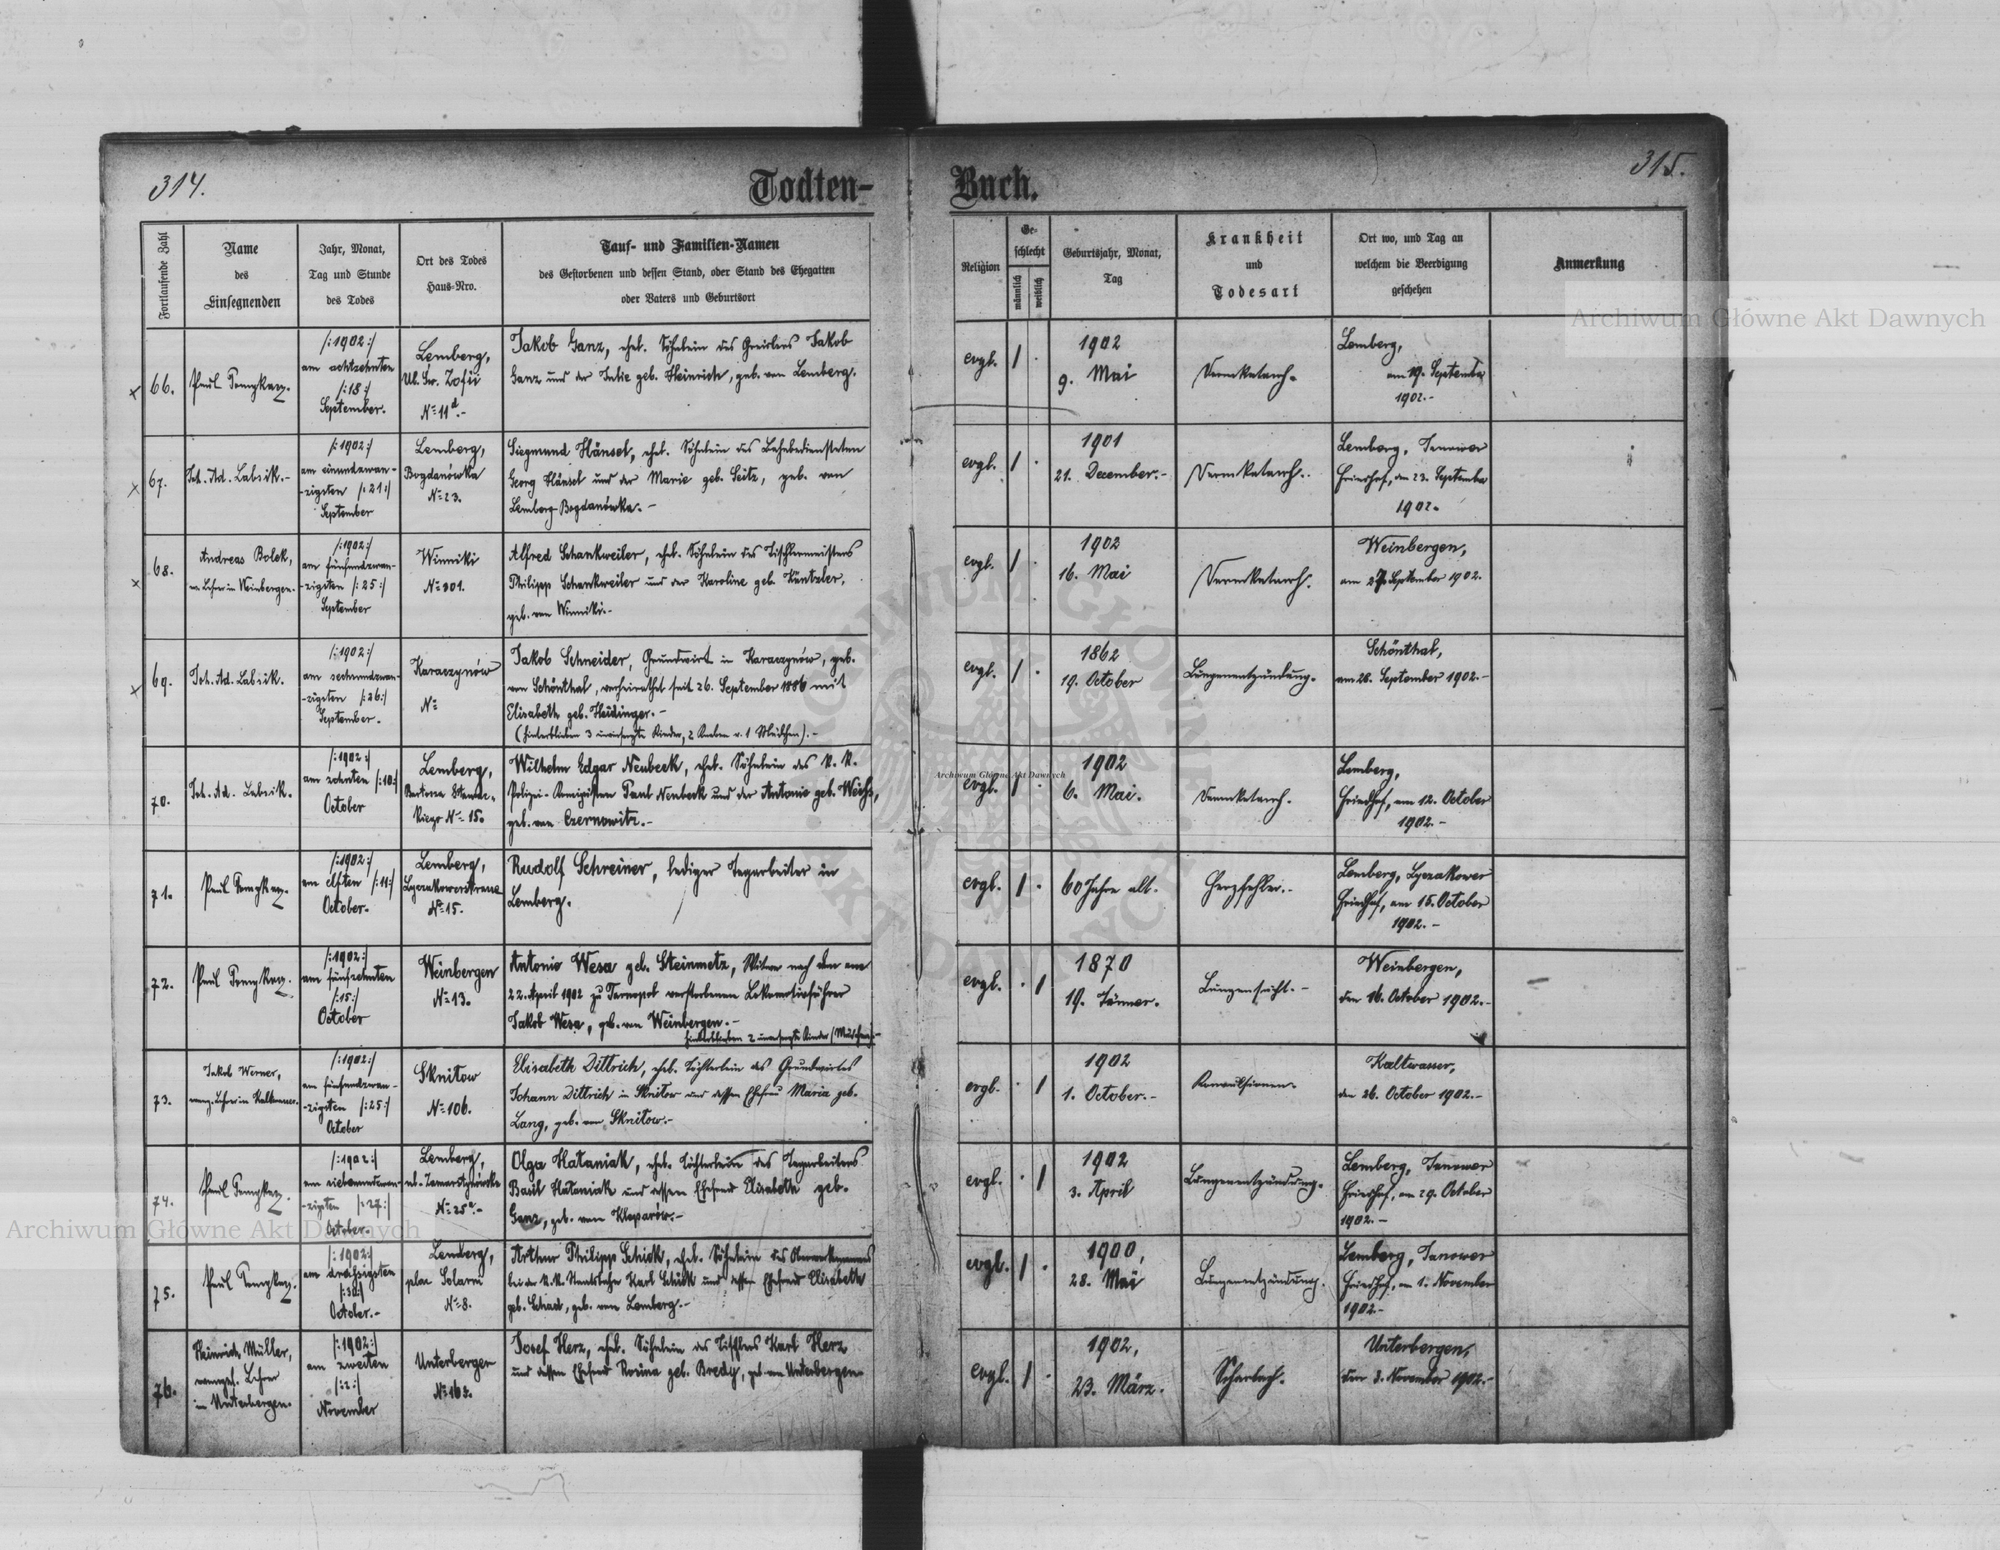 314.
Todten-
Buch.
315.
Fortlaufende Zahl
Name
des
Einsegnenden
Jahr, Monat,
Tag und Stunde
des Todes
Ort des Todes
Haus-Nro.
Tauf- und Familien-Namen
des Gestorbenen und dessen Stand, oder Stand des Ehegatten
oder Vaters und Geburtsort
Religion
Ge-
schlecht
männlich
weiblich
Geburtsjahr, Monat,
Tag
Krankheit
und
Todesart
Ort wo, und Tag an
welchem die Beerdigung
geschehen
Anmerkung
66.
Paul
/:1902:/
am achtzehnten
/:18:/
September.
Lemberg,
Ul. Św. Zofii
Nº 11 d.-
Jakob Ganz, ehel. Söhnlein des Jakob
Ganz und der Julie geb. Heinrich, geb. von Lemberg.
evgl.
1902
9. Mai
Darmkatarrh.
Lemberg,
am 19. September
1902.-
67.
/:1902:/
am einundzwan-
-zigsten /:21:/
September
Lemberg,
Bogdanówka
Nº 23.
Siegmund Hänsel, ehel. Söhnlein des Bahnbediensteten
Georg Hänsel und der Marie geb. Seitz, geb. von
Lemberg-Bogdanówka.-
evgl.
1901
21. December.-
Darmkatarrh.
Lemberg, Janower
Friedhof, am 23. September
1902.
68.
Andreas Bolek,
Lehrer in Weinbergen.
/:1902:/
am fünfundzwan-
-zigsten /:25:/
September
Winniki
Nº 301.
Alfred Schankweiler, ehel. Söhnlein des Tischlermeisters
Philipp Schankweiler und der Karoline geb. Küntzler,
geb. von Winniki.-
evgl.
1902
16. Mai
Darmkatarrh.
Weinbergen,
am 27. September 1902.
69.
/:1902:/
am sechsundzwan-
-zigsten /:26:/
September.
Karaczynów
Nº
Jakob Schneider, Grundwirt in Karaczynów, geb.
von Schönthal, verheirathet seit 26. September 1886 mit
Elisabeth geb. Heidinger.-
(hinterblieben 3 unversorgte Kinder, 2 Knaben u. 1 Mädchen).-
evgl.
1862
19. October
Lungenentzündung.
Schönthal,
am 28. September 1902.-
70.
/:1902:/
am zehnten /:10:/
October
Lemberg,
Nº 15.
Wilhelm Edgar Neubeck, ehel. Söhnlein des k. k.
Polizei- Paul Neubeck und der Antonie geb.
geb. von Czernowitz.-
evgl.
1902
6. Mai.
Darmkatarrh.
Lemberg,
Friedhof, am 12. October
1902.-
71.
Paul
/:1902:/
am elften /:11:/
October.
Lemberg,
Nº 15.
Rudolf Schreiner, lediger Tagarbeiter in
Lemberg.
evgl.
60 Jahre alt.
Herzfehler.-
Lemberg, Lyczakower
Friedhof, am 15. October
1902.-
72.
Paul
/:1902:/
am fünfzehnten
/:15:/
October
Weinbergen
Nº 13.
Antonie Wesa geb. Steinmetz, Witwe nach dem am
22. April 1902 zu Tarnopol verstorbenen Lokomotivführer
Jakob Wesa, geb. von Weinbergen.-
hinterblieben 2 unversorgte Kinder (Mädchen).-
evgl.
1870
19. Jänner.
Lungensucht.-
Weinbergen,
den 16. October 1902.-
73.
Jakob Werner,
/:1902:/
am fünfundzwan-
-zigsten /:25:/
October
Sknitow
Nº 106.
Elisabeth Dittrich, ehel. Töchterlein des Grundwirtes
Johann Dittrich in Sknitow und dessen Ehefrau Maria geb.
Lang, geb. von Sknitow.-
evgl.
1902
1. October.-
Konvulsionen.
Kaltwasser,
den 26. October 1902.-
74.
Paul
/:1902:/
am siebenundzwan-
-zigsten /:27:/
October.
Lemberg,
Nº 25a.-
Olga Hataniak, ehel. Töchterlein des Tagarbeiters
Basil Hataniak und dessen Ehefrau Elisabeth geb.
Ganz, geb. von Kleparów.-
evgl.
1902
3. April
Lungenentzündung.
Lemberg, Janower
Friedhof, am 29. October
1902.-
75.
Paul
/:1902:/
am dreißigsten
/:30:/
October.-
Lemberg,
plac Solarni
Nº 8.
Arthur Philipp Schick, ehel. Söhnlein des
bei der k.k. Staatsbahn Karl Schick und dessen Ehefrau Elisabeth
geb. Schad, geb. von Lemberg.-
evgl.
1900,
28. Mai
Lungenentzündung.
Lemberg, Janower
Friedhof, am 1. November
1902.-
76.
Heinrich Müller,
evangel. Lehrer
in Unterbergen.
/:1902:/
am zweiten
/:2:/
November
Unterbergen
Josef Herz, ehel. Söhnlein des Tischlers Karl Herz
und dessen Ehefrau Rosina geb. Bredy, geb. von Unterbergen.
evgl.
1902,
23. März.
Scharlach.
Unterbergen,
den 3. November 1902.-
Archiwum Główne Akt Dawnych
Archiwum Główne Akt Dawnych
Archiwum Główne Akt Dawnych